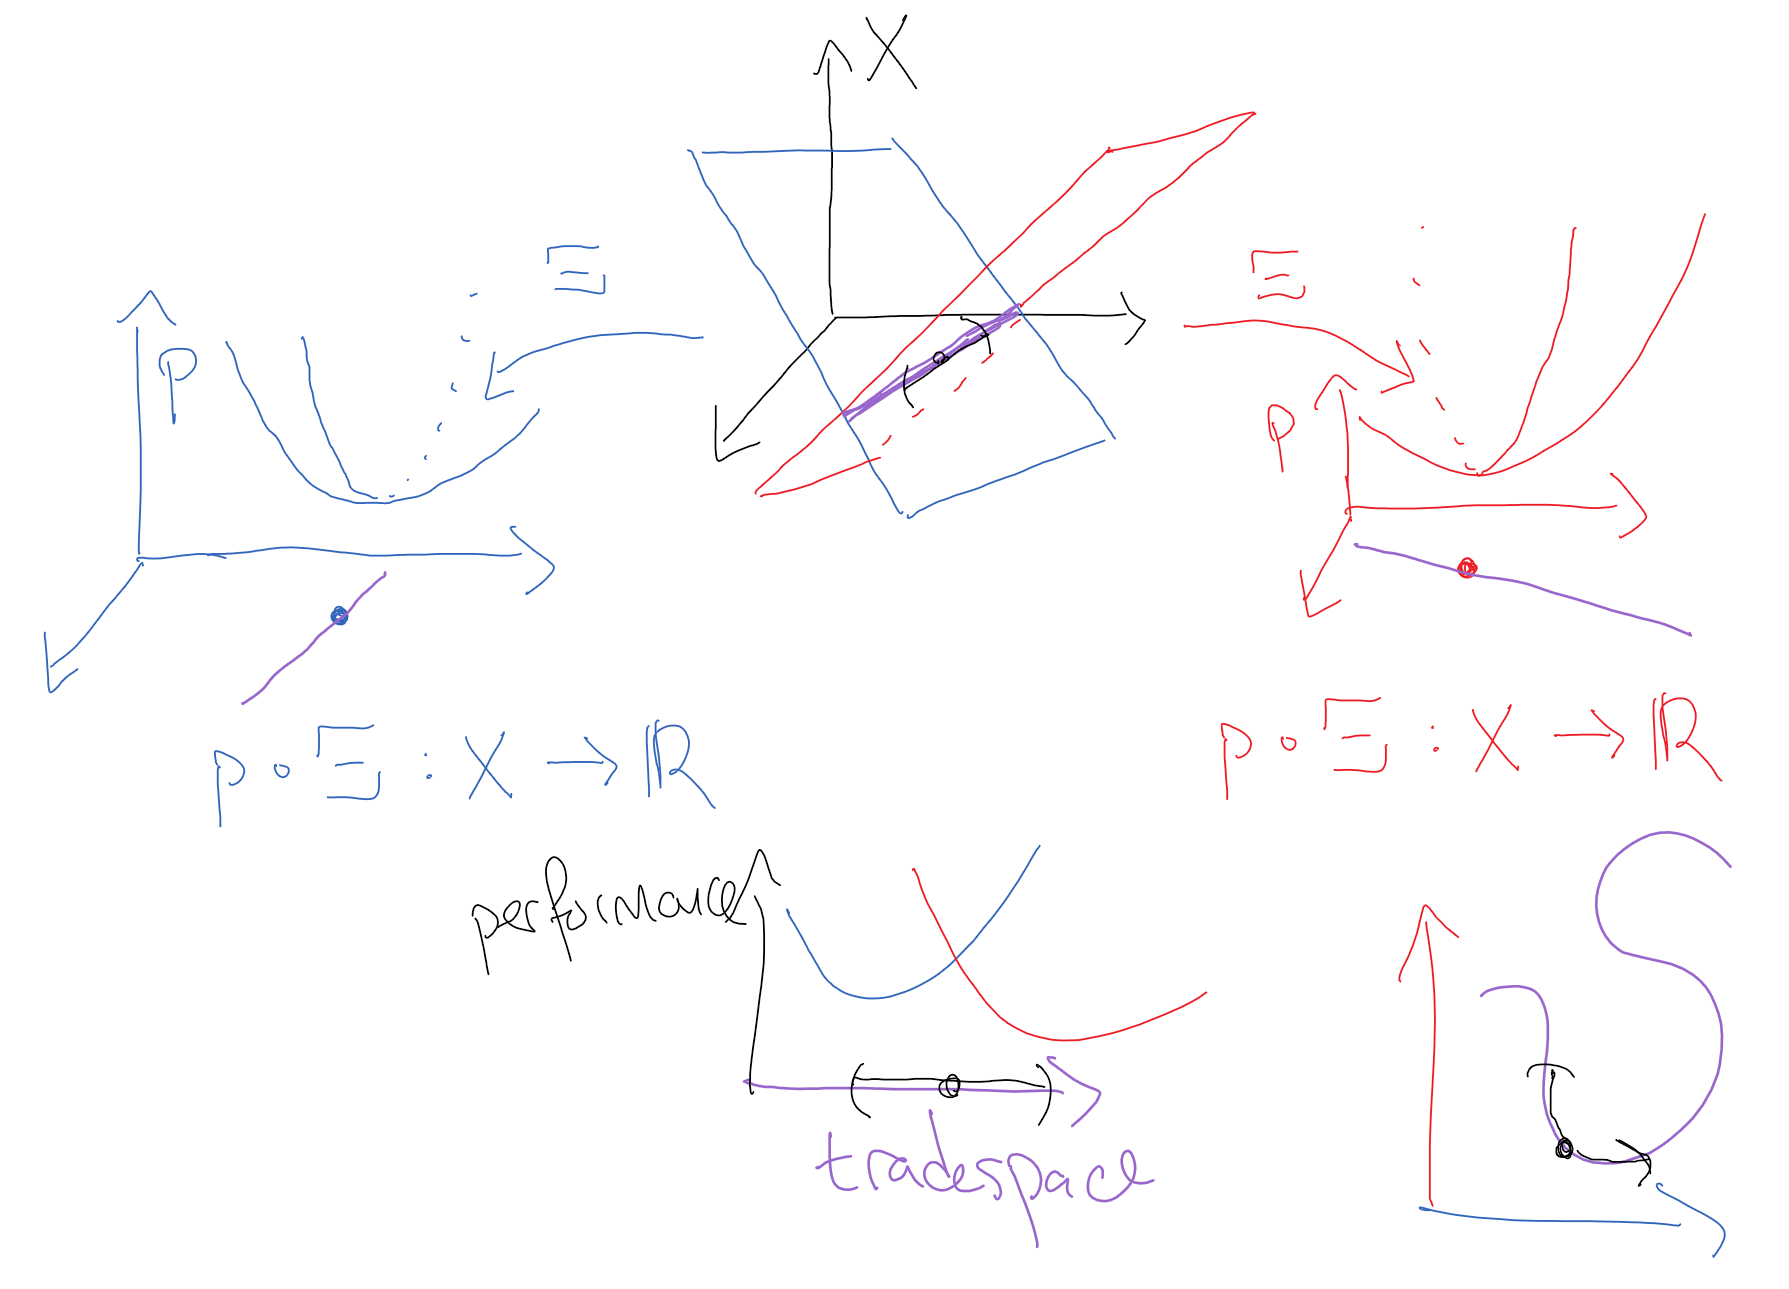 X
Ξ
Ξ
p
p
p ∘ Ξ : X → ℝ
p ∘ Ξ : X → ℝ
performance
tradespace